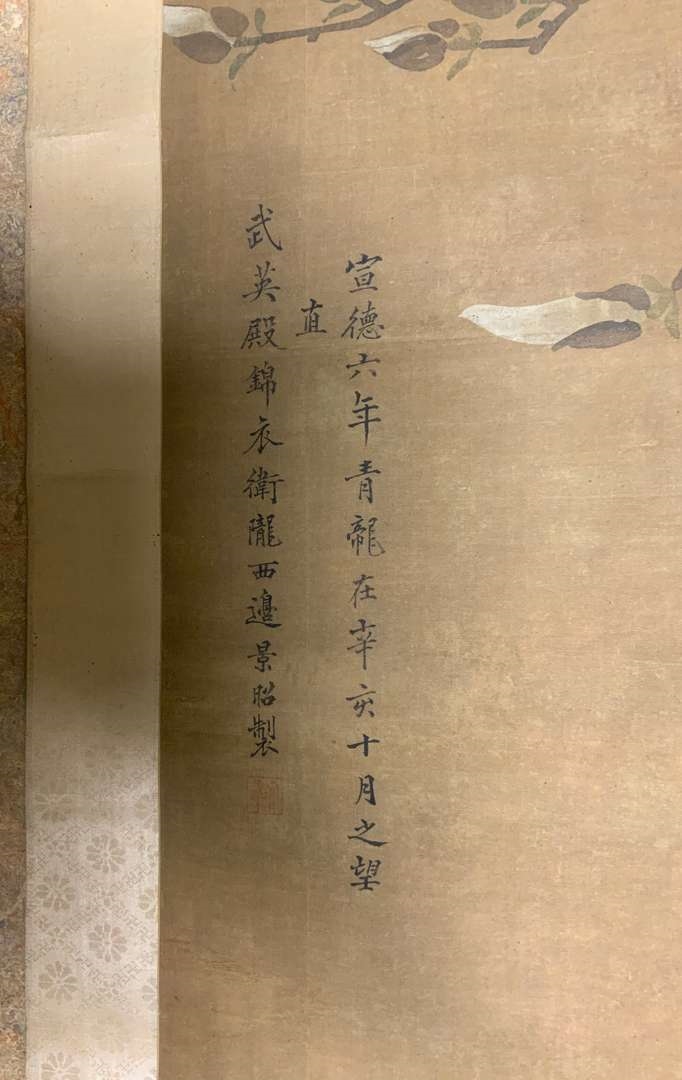 宣德六年青龍在辛亥十月之望
直
武英殿錦衣衛隴西邊景昭製